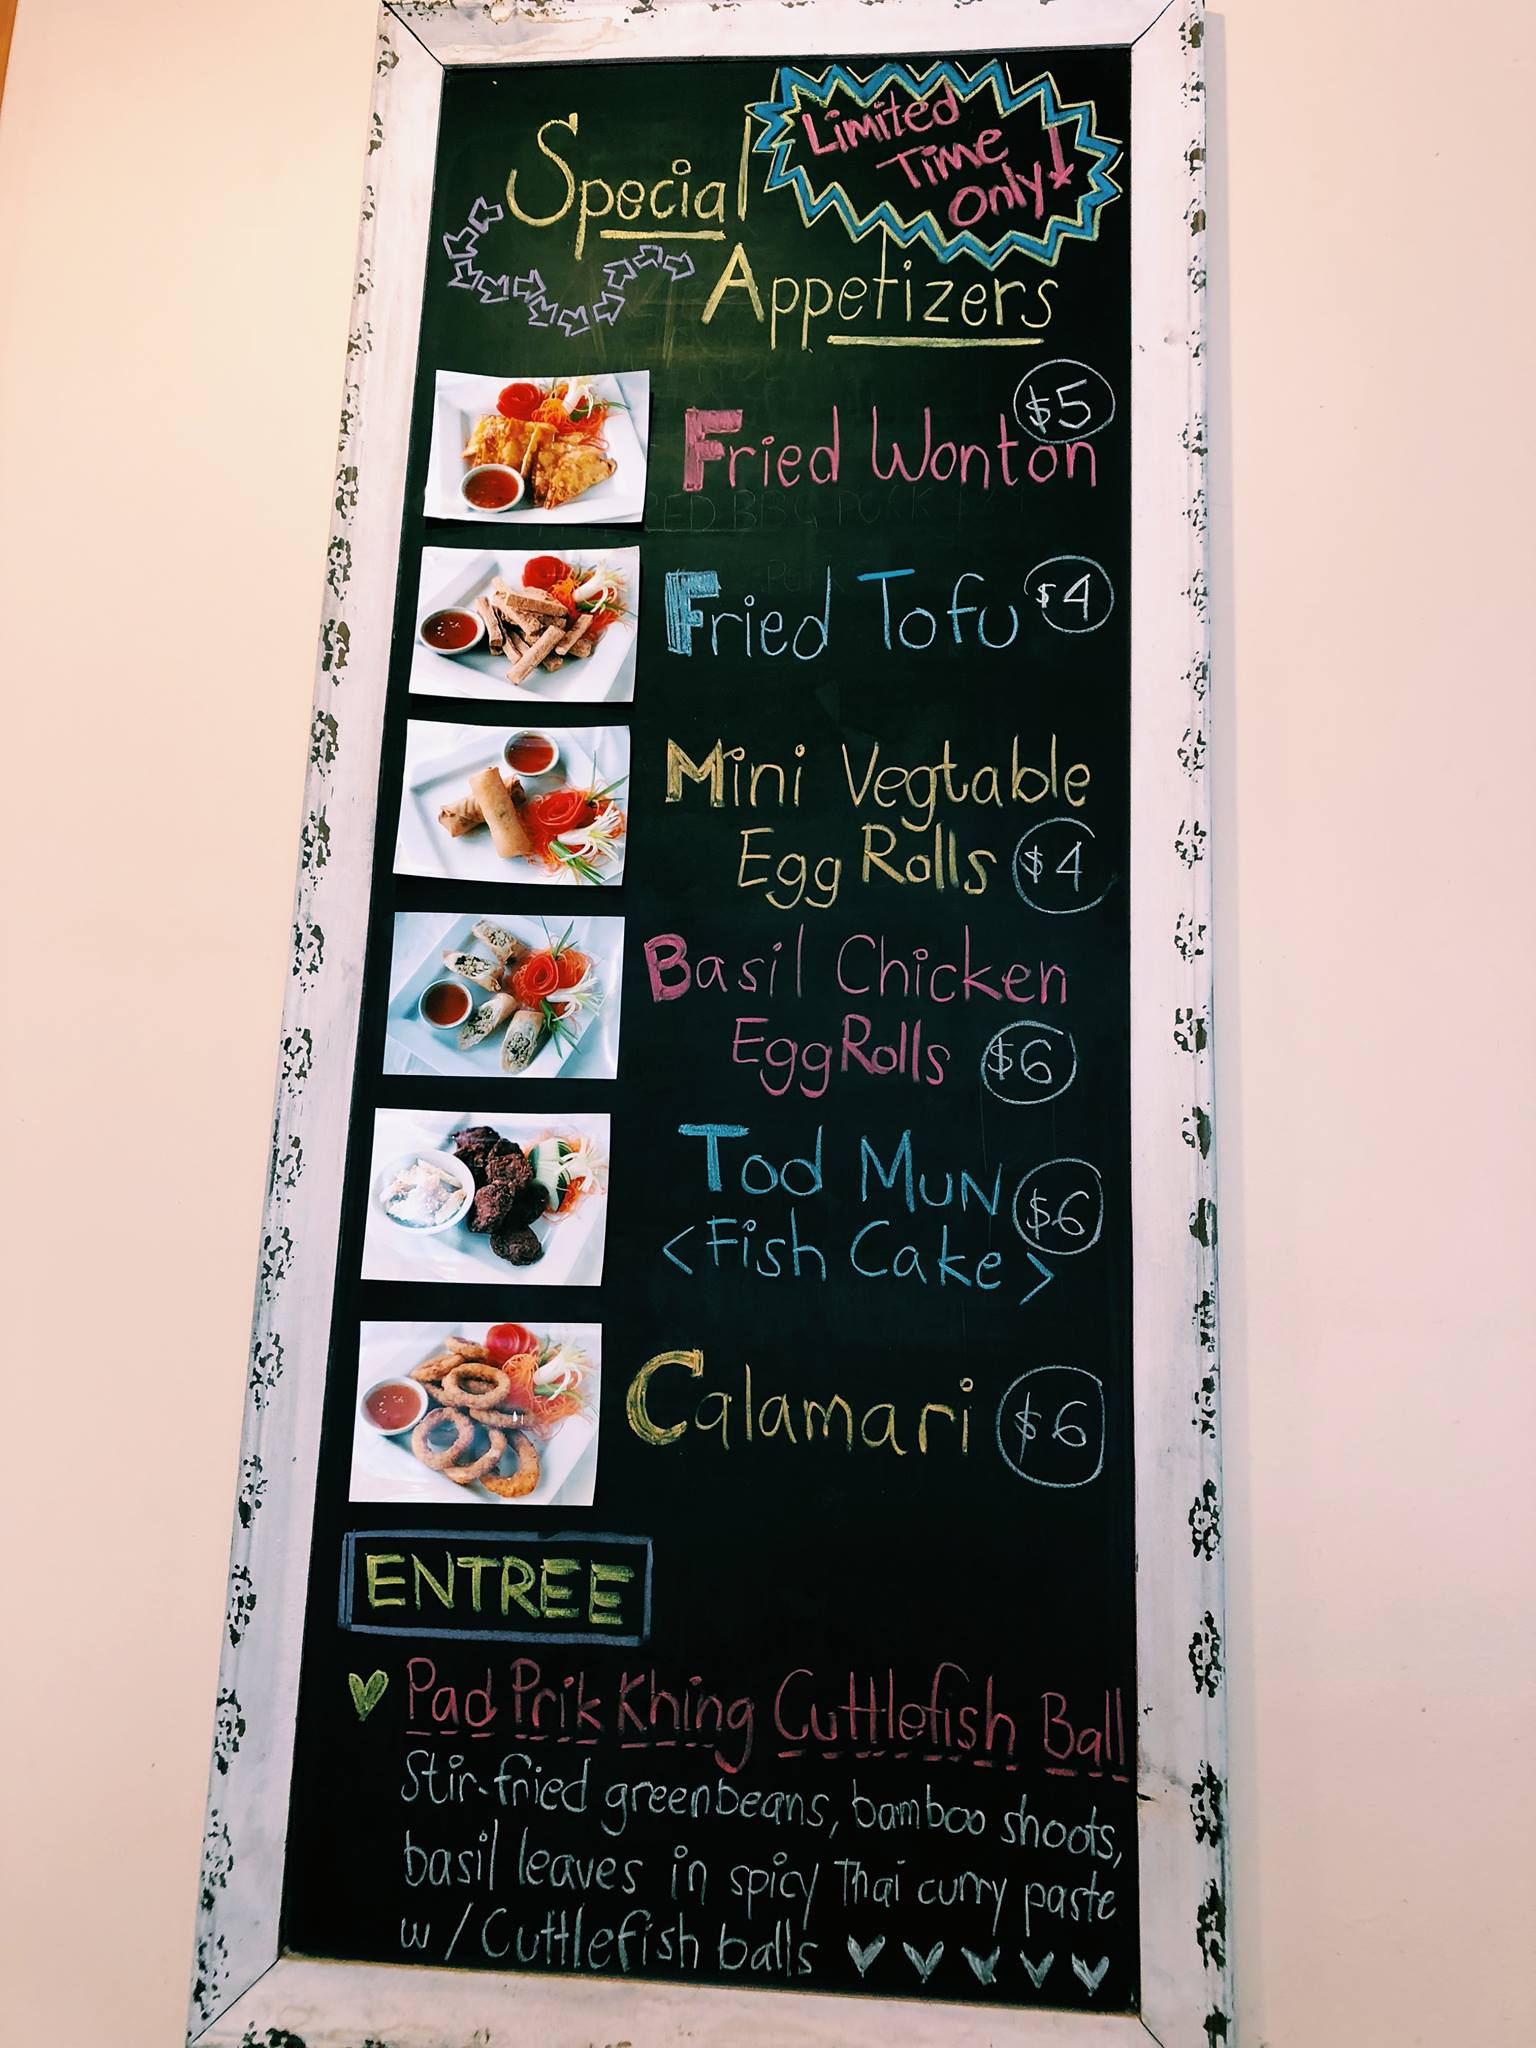 Special
Limited
Time
Only!
Appetizers
$5
Fried Wonton
Fried Tofu $4
Mini Vegtable
Egg Rolls $4
Basil Chicken
Egg Rolls $6
Tod Mun $6
<Fish Cake>
Calamari $6
ENTREE
Pad Prik Khing Cuttlefish Ball
Stir-fried greenbeans, bamboo shoots,
basil leaves in spicy Thai curry paste
w/ Cuttlefish balls